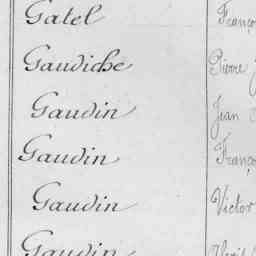 Gatel Franço
Gaudiche Pierre
Gaudin Jean
Gaudin Franço
Gaudin Victor
Gaudin